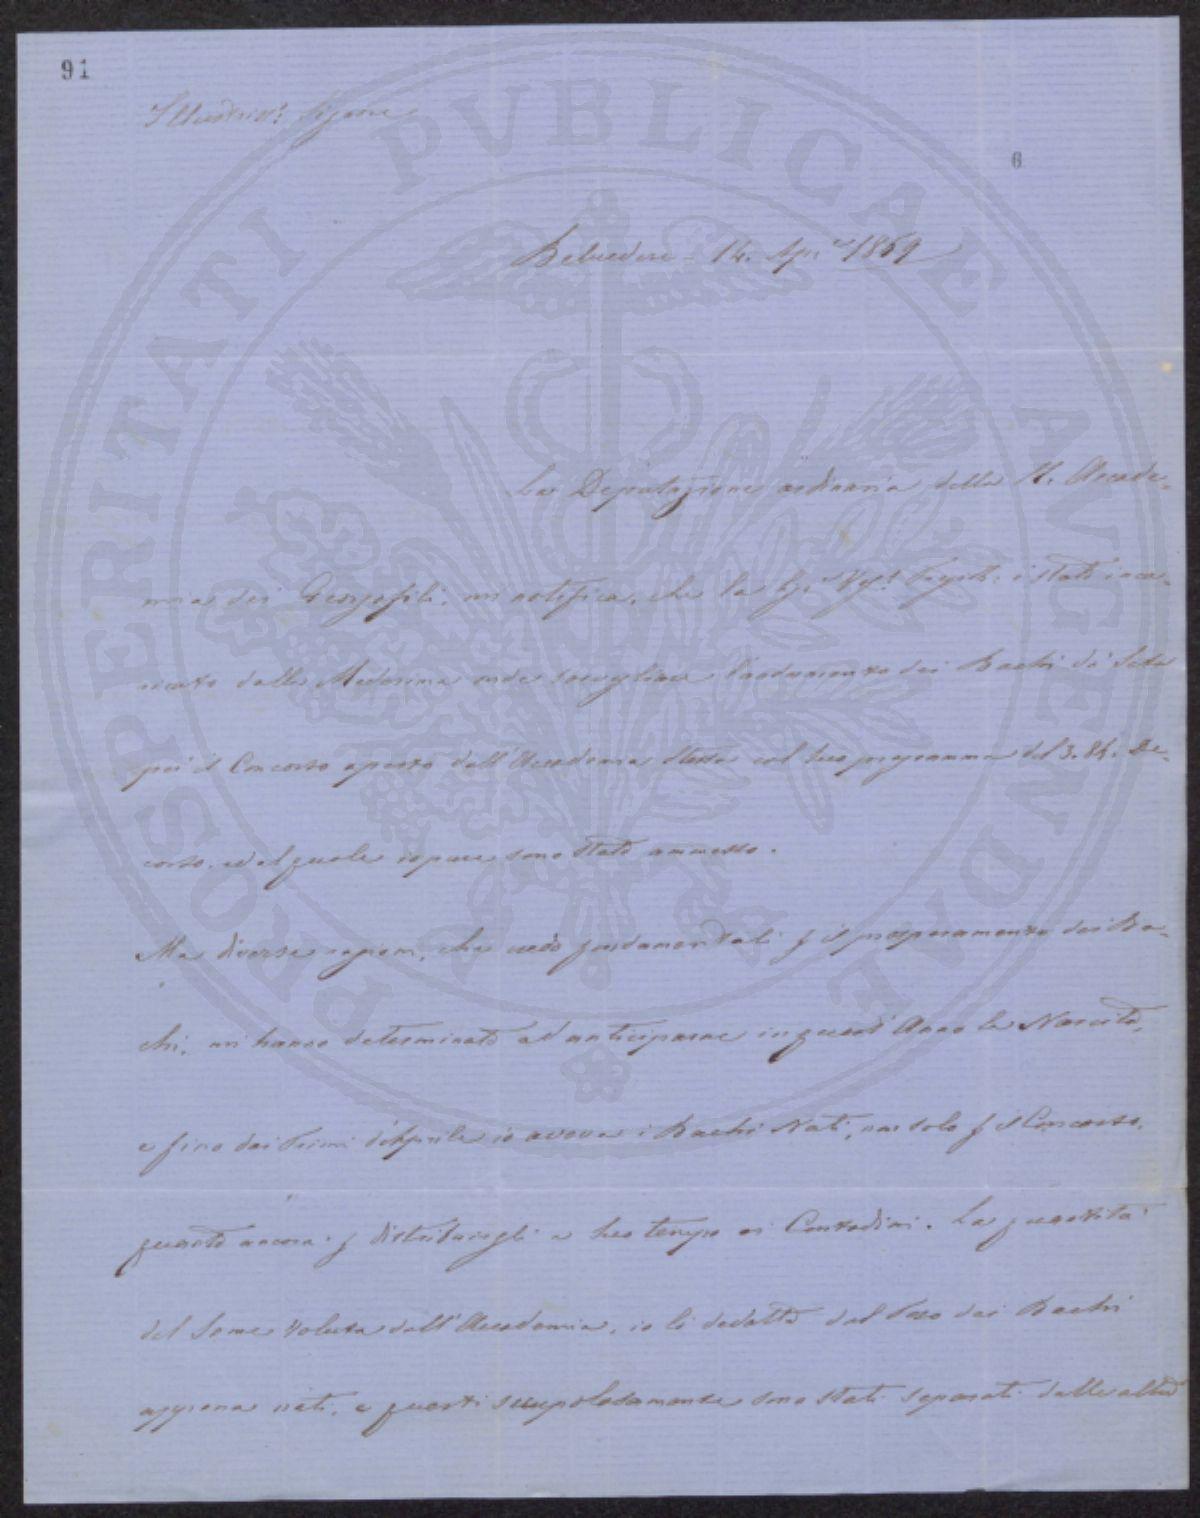 91
Illustriss.e Signore
6
PROSPERITATI PUBLICAE AUGENDAE
Belvedere - 14. Apr.le 1859
La Deputazione ordinaria della R. Accade-
mia dei Georgofili, mi notifica, che la è stato inca-
ricato dalla Medesima onde sorvegliare l'andamento dei Bachi da Seta
per il Concorso aperto dall'Accademia stessa col suo programma del 3. De-
corso, ed al quale io pure sono stato ammesso.
Ma diverse ragioni, che credo fondamentali p il prosperamento dei Ba-
chi, mi hanno determinato ad anticiparne in quest'Anno la Nascita,
e fino dai Primi d'Aprile io aveva i Bachi Nati, non solo p il Concorso,
quanto ancora p distribuirgli a suo tempo ai Contadini. La quantità
del Seme voluta dall'Accademia, io l'ò dedotta dal Peso dei Bachi
appena nati, e questi scrupolosamente sono stati separati dalle altre